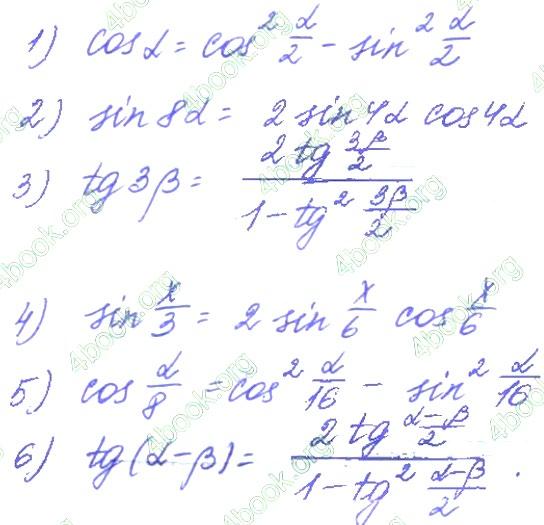 1) cosα = cos² α/2 − sin² α/2
2) sin 8α = 2 sin 4α cos 4α
3) tg 3β = (2 tg 3β/2) / (1 − tg² 3β/2)
4) sin x/3 = 2 sin x/6 cos x/6
5) cos α/8 = cos² α/16 − sin² α/16
6) tg(α−β) = (2 tg (α−β)/2) / (1 − tg² (α−β)/2).
4book.org